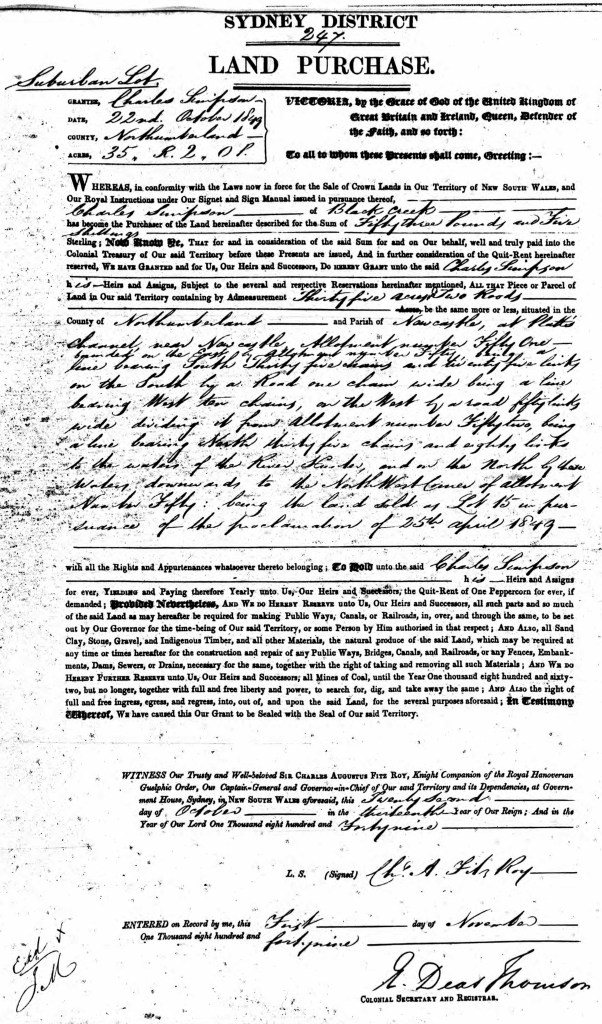 SYDNEY DISTRICT
247.
LAND PURCHASE.
Suburban Lot
GRANTEE, Charles Simpson
DATE, 22nd. October 1849
COUNTY, Northumberland
ACRES, 35, R. 2, 0 P.
VICTORIA, by the Grace of God of the United Kingdom of
Great Britain and Ireland, Queen, Defender of
the Faith, and so forth:
To all to whom these Presents shall come, Greeting:—
WHEREAS, in conformity with the Laws now in force for the Sale of Crown Lands in Our Territory of NEW SOUTH WALES, and
Our Royal Instructions under Our Signet and Sign Manual issued in pursuance thereof,
Charles Simpson of Black Creek
has become the Purchaser of the Land hereinafter described for the Sum of Fifty three Pounds and Five
Shillings
Sterling; Now Know Ye, THAT for and in consideration of the said Sum for and on Our behalf, well and truly paid into the
Colonial Treasury of Our said Territory before these Presents are issued, And in further consideration of the Quit-Rent hereinafter
reserved, WE HAVE GRANTED and for Us, Our Heirs and Successors, DO HEREBY GRANT unto the said Charles Simpson
his Heirs and Assigns, Subject to the several and respective Reservations hereinafter mentioned, ALL THAT Piece or Parcel of
Land in Our said Territory containing by Admeasurement Thirty five acres Two Roods
Acres, be the same more or less, situated in the
County of Northumberland and Parish of Newcastle, at Platts
Channel, near Newcastle, Allotment number Fifty One—
bounded on the East by allotment number Fifty being a
line bearing South Thirty five chains and twenty five links
on the South by a Road one chain wide being a line
bearing West ten chains, on the West by a road fifty links
wide dividing it from Allotment number Fifty two, being
a line bearing North thirty five chains and eighty links
to the waters of the River Hunter, and on the North by those
Waters downwards to the North West Corner of allotment
Number Fifty: being the land sold as Lot 15 in pur-
suance of the proclamation of 25th April 1849—
with all the Rights and Appurtenances whatsoever thereto belonging; To Hold unto the said Charles Simpson
his Heirs and Assigns
for ever, YIELDING and Paying therefore Yearly unto Us, Our Heirs and Successors, the Quit-Rent of One Peppercorn for ever, if
demanded; Provided Nevertheless, AND WE DO HEREBY RESERVE unto Us, Our Heirs and Successors, all such parts and so much
of the said Land as may hereafter be required for making Public Ways, Canals, or Railroads, in, over, and through the same, to be set
out by Our Governor for the time-being of Our said Territory, or some Person by Him authorised in that respect; AND ALSO, all Sand
Clay, Stone, Gravel, and Indigenous Timber, and all other Materials, the natural produce of the said Land, which may be required at
any time or times hereafter for the construction and repair of any Public Ways, Bridges, Canals, and Railroads, or any Fences, Embank-
ments, Dams, Sewers, or Drains, necessary for the same, together with the right of taking and removing all such Materials; AND WE DO
HEREBY FURTHER RESERVE unto Us, Our Heirs and Successors; all Mines of Coal, until the Year One thousand eight hundred and sixty-
two, but no longer, together with full and free liberty and power, to search for, dig, and take away the same; AND ALSO the right of
full and free ingress, egress, and regress, into, out of, and upon the said Land, for the several purposes aforesaid; In Testimony
Whereof, WE have caused this Our Grant to be Sealed with the Seal of Our said Territory.
WITNESS Our Trusty and Well-beloved SIR CHARLES AUGUSTUS FITZ ROY, Knight Companion of the Royal Hanoverian
Guelphic Order, Our Captain-General and Governor-in-Chief of Our said Territory and its Dependencies, at Govern-
ment House, Sydney, in NEW SOUTH WALES aforesaid, this Twenty second
day of October in the thirteenth Year of Our Reign; And in the
Year of Our Lord One Thousand eight hundred and Forty nine
L. S. (Signed) Chs. A. Fitz Roy
ENTERED on Record by me, this First day of November
One Thousand eight hundred and forty nine
E. Deas Thomson
COLONIAL SECRETARY AND REGISTRAR.
Exd
J. M